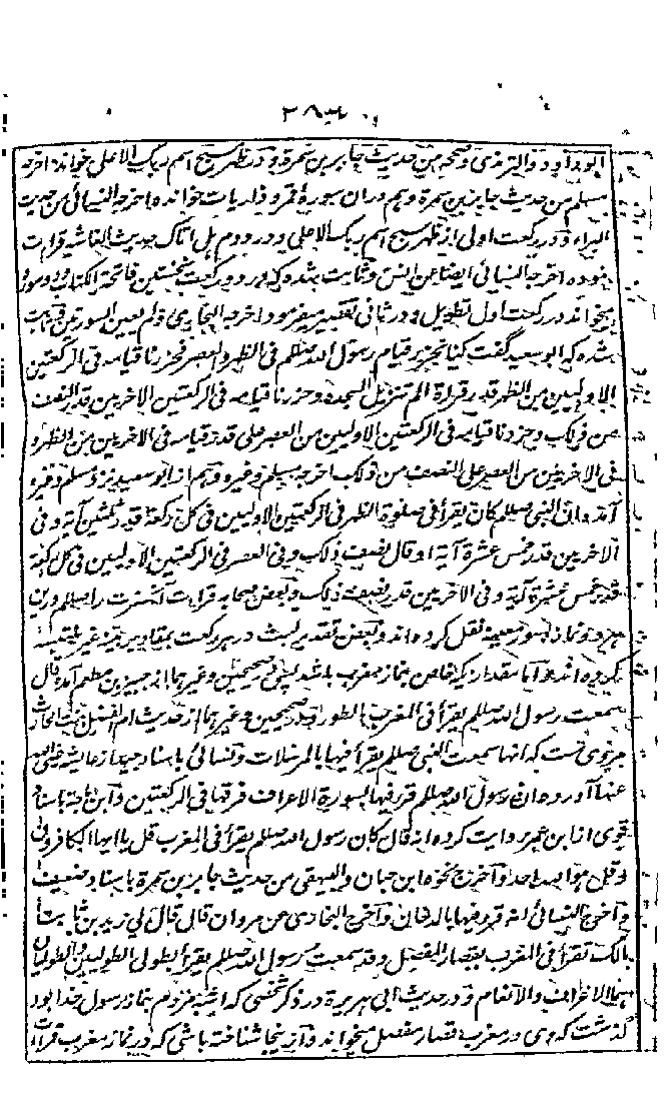 ۲۸۳
ابو داود و الترمذی و صححه من حدیث جابر بن سمرة و در ظهر سبح اسم ربک الاعلی خوانده اخرجه
مسلم من حدیث جابر بن سمرة و هم دران سورهٔ قمر و ذاریات خوانده اخرجه النسائی من حدیث
البراء و در رکعت اولی از ظهر سبح اسم ربک الاعلی و در دوم هل اتاک حدیث الغاشیه قرات
نموده اخرجه النسائی ایضا عن انس و ثابت شده که در دو رکعت نخستین فاتحة الکتاب و دو سوره
میخواند در رکعت اول تطویل و در ثانی تقصیر میفرمود اخرجه البخاری و لم یعین السورتین و ثابت
شده که ابو سعید گفت کنا نحزر قیام رسول الله صلعم فی الظهر و العصر فحزرنا قیامه فی الرکعتین
الاولیین من الظهر قدر قراة الم تنزیل السجدة و حزرنا قیامه فی الرکعتین الاخریین قدر النصف
من ذلک و حزرنا قیامه فی الرکعتین الاولیین من العصر علی قدر قیامه فی الاخریین من الظهر و
فی الاخریین من العصر علی النصف من ذلک اخرجه مسلم و غیره و هم از ابو سعید نزد مسلم و غیره
آمده ان النبی صلعم کان یقرأ فی صلوة الظهر فی الرکعتین الاولیین فی کل رکعة قدر ثلثین آیة و فی
الاخریین قدر خمس عشرة آیة او قال نصف ذلک و فی العصر فی الرکعتین الاولیین فی کل رکعة
قدر خمس عشرة آیة و فی الاخریین قدر نصف ذلک و بعض صحابه قراءت آنحضرت را صلعم درین
هر دو نماز بسور معینه نقل کرده اند و بعض تقدیر لبث در هر رکعت بمقادیر غیر
کرده اند و اما مقداریکه خاص بنماز مغرب باشد پس در صحیحین و غیرهما از جبیر بن مطعم آمده قال
سمعت رسول الله صلعم یقرأ فی المغرب بالطور و در صحیحین و غیرهما از حدیث ام الفضل بنت الحارث
مروی ست که انها سمعت النبی صلعم یقرأ فیها بالمرسلات و نسائی باسناد جید از عایشه رضی الله
عنها آورده ان رسول الله صلعم قرء فیها بسورة الاعراف فرقها فی الرکعتین و ابن ماجة باسناد
قوی از ابن عمر روایت کرده انه قال کان رسول الله صلعم یقرأ فی المغرب قل یا ایها الکافرون
و قل هو الله احد و اخرج نحوه ابن حبان و البیهقی من حدیث جابر بن سمرة باسناد ضعیف
و اخرج النسائی انه قرء فیها بالدخان و اخرج البخاری عن مروان قال قال لی زید بن ثابت
مالک تقرأ فی المغرب بقصار المفصل و قد سمعت رسول الله صلعم یقرأ بطولی الطولیین و الطولیان
هما الاعراف و الانعام و در حدیث ابی هریرة در ذکر شخصی که اشبه مردم بنماز رسول خدا بود
گذشت که وی در مغرب قصار مفصل میخواند و از ینجا شناخته باشی که در نماز مغرب قراءت